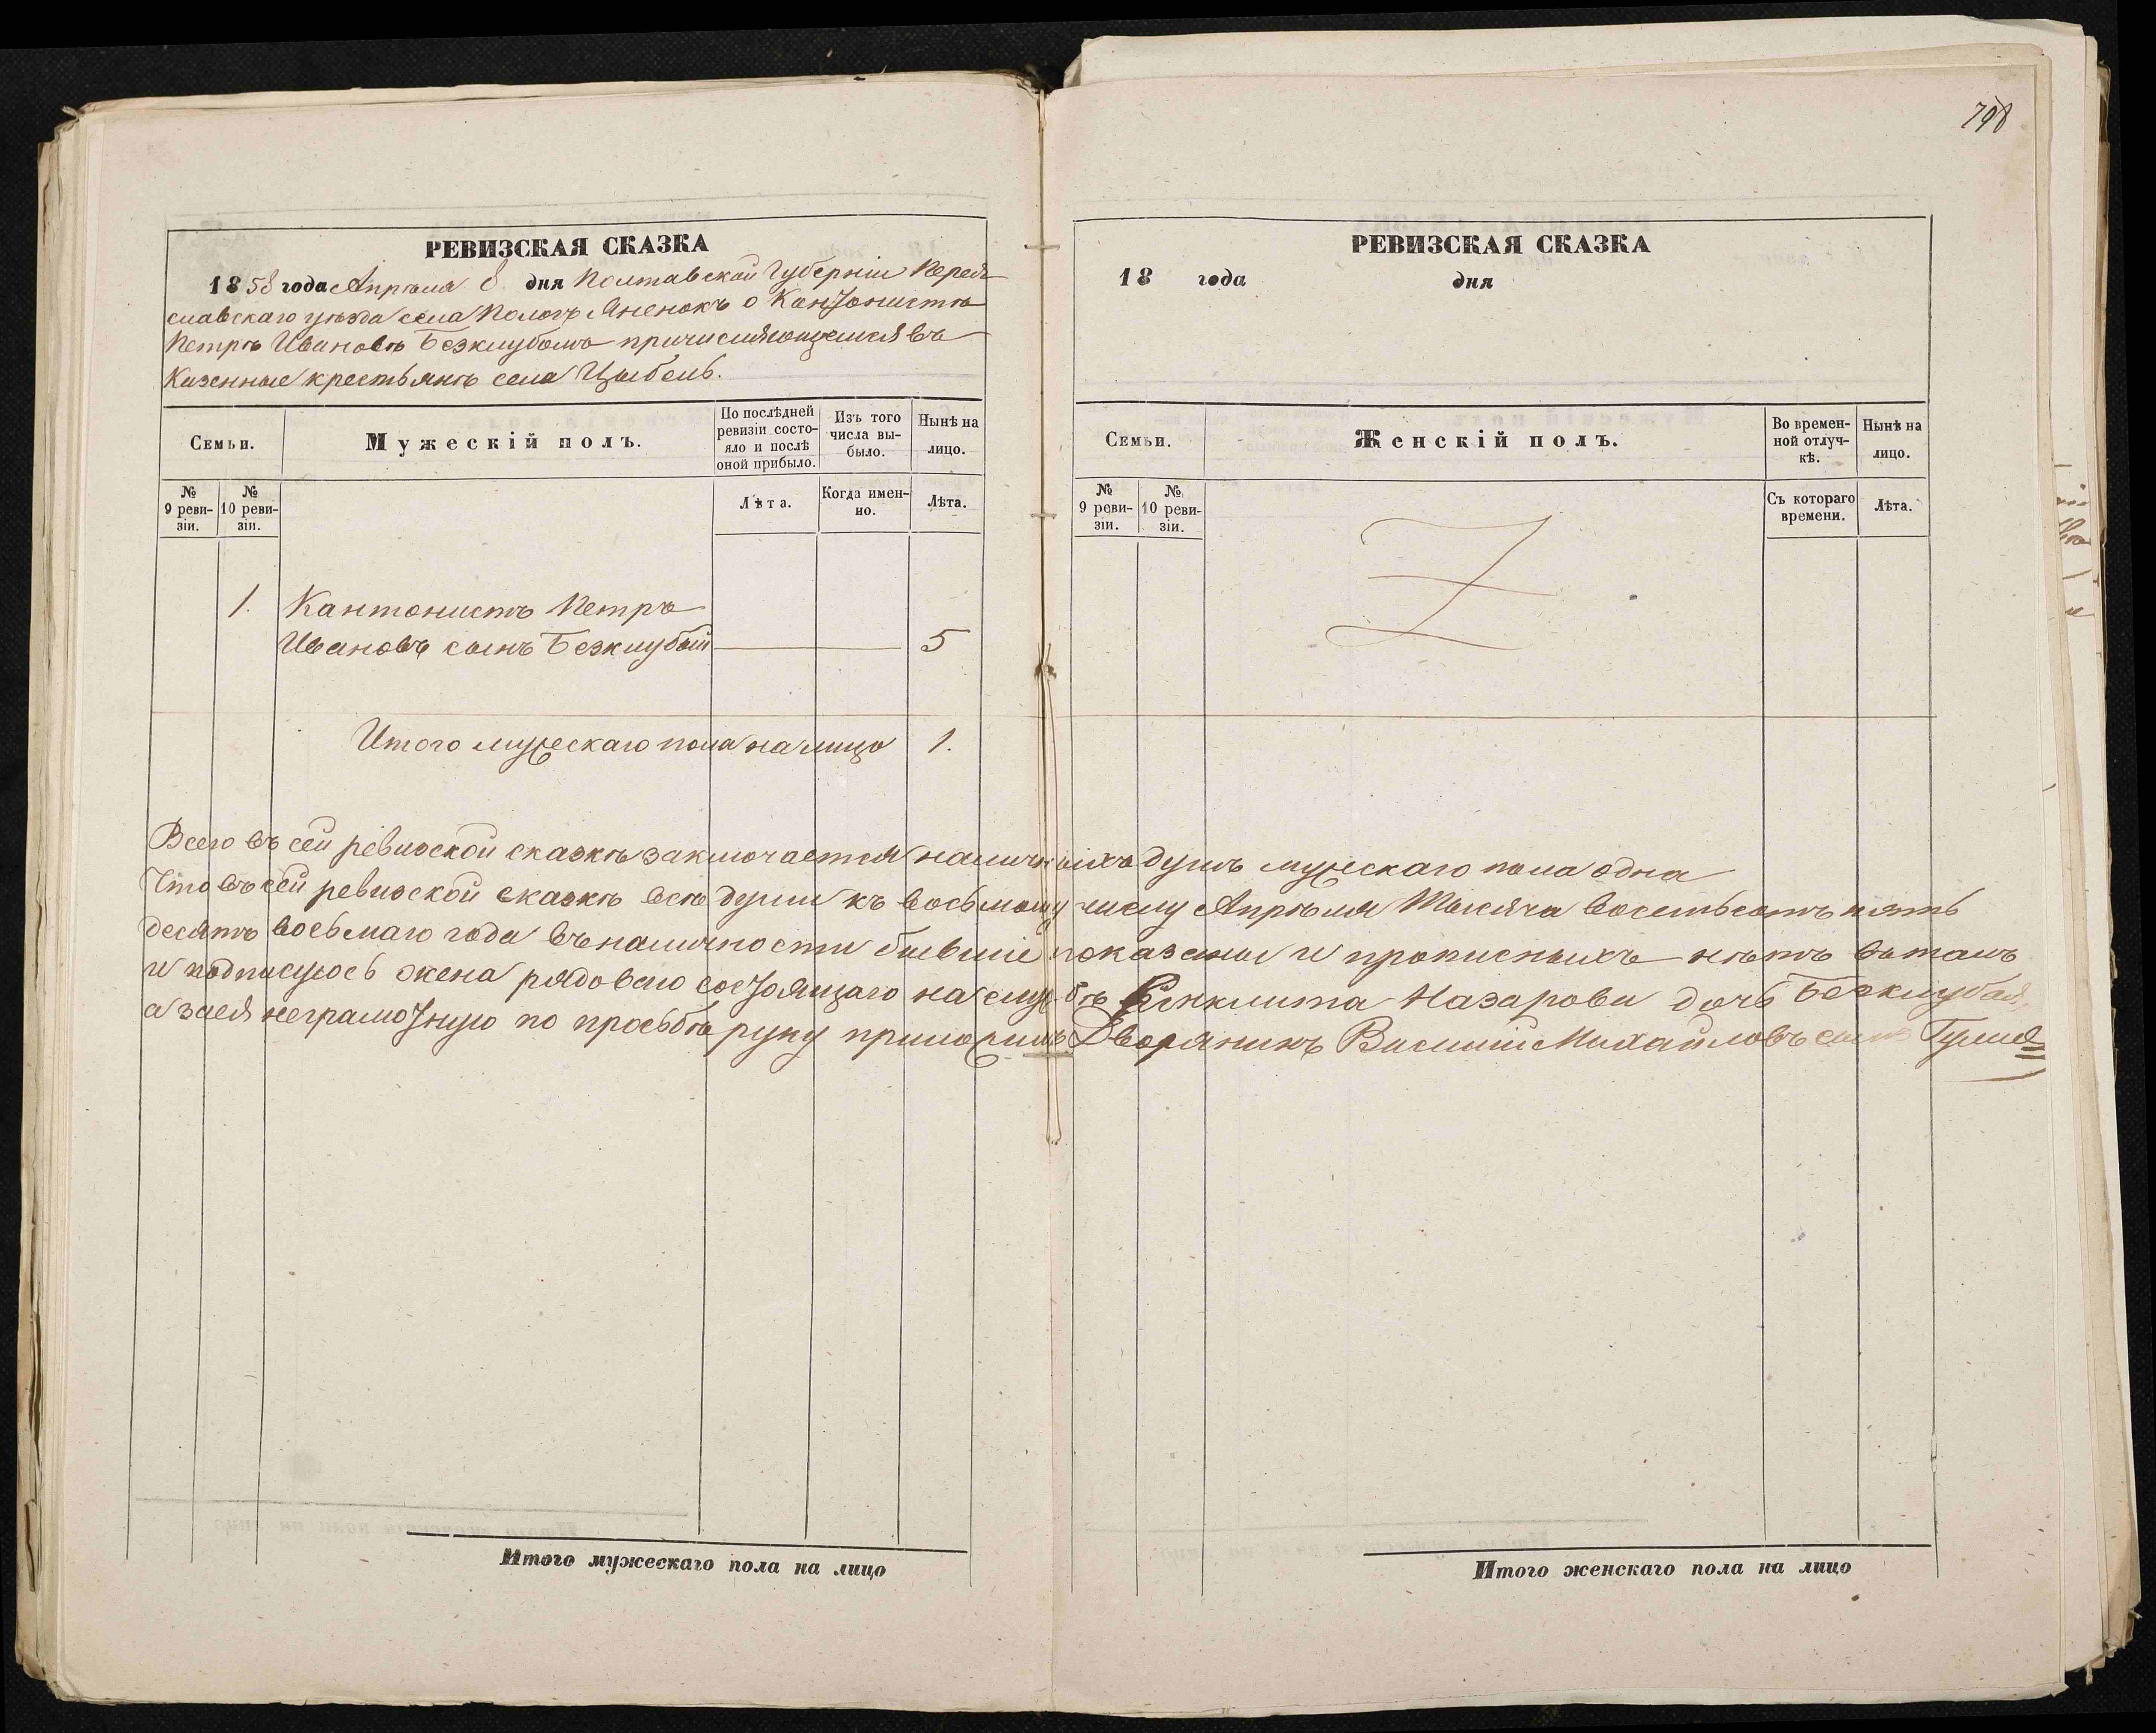 798
РЕВИЗСКАЯ СКАЗКА
1858 года Апрѣля 8 дня Полтавской Губерніи Перея-
славскаго уѣзда села Пологъ Яненокъ о Кантонистѣ
Петрѣ Ивановѣ Безклубомъ причисляющемся въ
Казенные крестьянъ села Цыбель.
Семьи.
Мужескій полъ.
По послѣдней ревизіи состояло и послѣ оной прибыло.
Изъ того числа выбыло.
Нынѣ на лицо.
№ 9 ревизіи.
№ 10 ревизіи.
Лѣта.
Когда именно.
Лѣта.
1. Кантонистъ Петръ
Ивановъ сынъ Безклубый 5
Итого мужескаго пола на лицо 1.
РЕВИЗСКАЯ СКАЗКА
18 года дня
Семьи.
Женскій полъ.
Во временной отлучкѣ.
Нынѣ на лицо.
№ 9 ревизіи.
№ 10 ревизіи.
Съ котораго времени.
Лѣта.
Всего въ сей ревизской сказкѣ заключается наличныхъ душъ мужескаго пола одна
Что въ сей ревизской сказкѣ всѣ души къ восьмому числу Апрѣля Тысяча восемьсотъ пять
десятъ восьмаго года въ наличности бывшіе показаны и прописныхъ нѣтъ въ томъ
и подписуюсь жена рядоваго состоящаго на службѣ Назарова дочь Безклубая,
а за ея неграмотную по просьбѣ руку приложилъ Дворянинъ Василій Михайловъ сынъ
Итого мужескаго пола на лицо
Итого женскаго пола на лицо